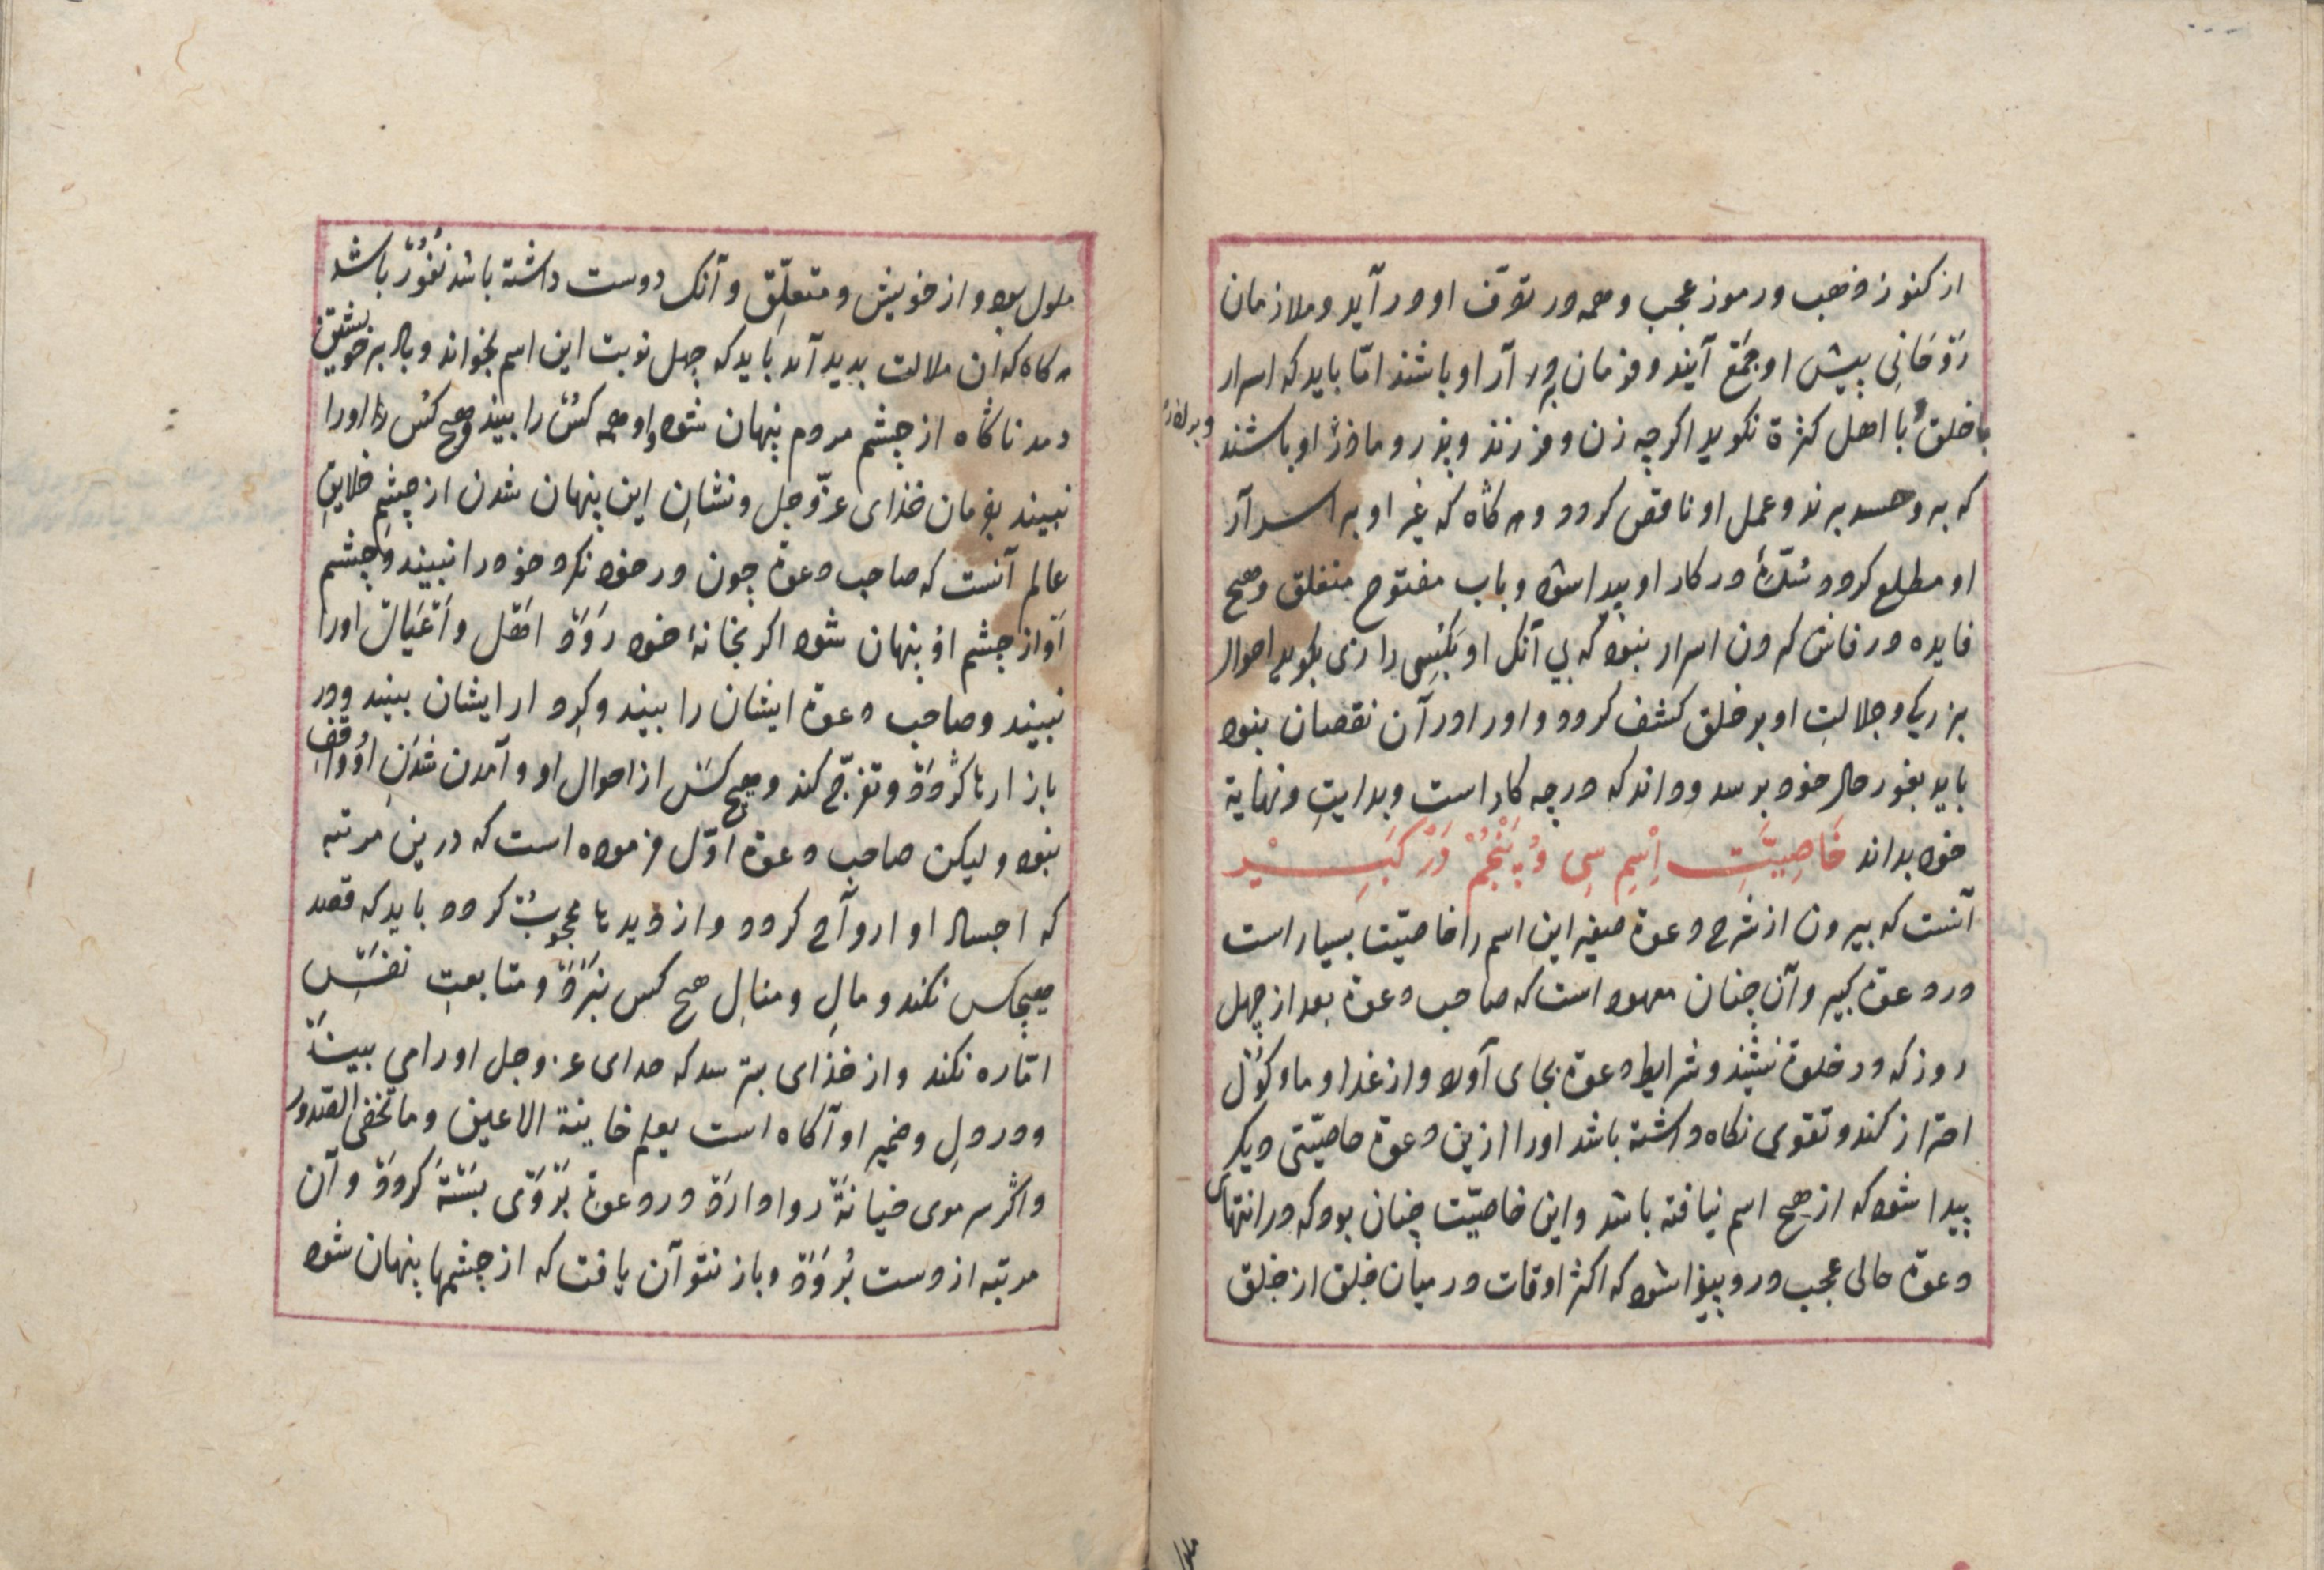 از کنوز و ذهب و رموز عجب و همه در تصرّف او در آید و ملازمان
رَوْحَانِی پیش او جَمْع آیند و فرمان او باشند امّا باید که اسرار
با خلق با اهل کثرة نکوید اکرچه زن و فرزند و پذر و ماذر او باشند
که بر و حسد برند و عمل او ناقص کردد و هر کاه که غیر او بر اسرار
او مطلع کردد در کار او پیدا شود و باب مفتوح منغلق و هیچ
فایده در فاش کردن اسرار نبود که بی آنک او بکسی رازی بکوید احوال
بزرکی و جلالتِ او بر خلق کشف کردد و او را در آن نقصان نبود
باید بغور حال خود برسد و داند که در چه کار است و بدایتِ و نهایة
خود بداند خَاصِیَّتِ اِسْمِ سِی وُ پَنْجُمْ دَرْ کَبِیْر
آنست که بیرون از شرح دعوة صغیر این اسم را خاصیّت بسیار است
در دعوة کبیر و آن چنان معهود است که صاحب دعوة بعد از چهل
روز که در خلوة نشیند و شرایط دعوة بجای آورد و از غدا و ماوکول
احتراز کند و تقوی نکاه داشته باشد او را ازین دعوة خاصیّتی دیکر
پیدا شود که از هیچ اسم نیافته باشد و این خاصیّت چنان بود که در انتهای
دعوة حالی عجب در و پیذا شود که اکثر اوقات در میان خلق از خلق
ملول بود و از خویش و متعلِّق و آنک دوست داشته باشد نفُوُرْ باشد
هر کاه که ان ملالت بدید آید باید که چهل نوبت این اسم بخواند و باد بر خویشتن
دمد ناکاه از چشم مردم پنهان شود و او همه کَسْ را بیند و هیچ کس او را
نبیند بفرمان خذای عزّوجل و نشانِ این پنهان شدن از چشمِ خلایقِ
عالم آنست که صاحب دعوة چون در خود نکرد خود را نبیند و چشم
او از چشم او پنهان شود اکر بخانهٔ خود رَوَدْ اهل و عیال او را
نبیند و صاحب دعوة ایشان را بیند و کردار ایشان بیند و در
بازارها کردد و تفرّج کند و هیچ کس از احوال او و آمدن شدنِ او واقف
نبود و لیکن صاحب دعوة اوّل فرموده است که درین مرتبه
که اجساد او ارواح کردد و از دیدها محجوبْ کردد باید که قصد
هیچکس نکند و مالِ و منالِ هیچ کس نبرد و متابعتِ نفسِ
امّاره نکند و از خذای بترسد که خدای عز وجل او را می بیند
و در دل و ضمیر او آکاه است یعلم خاینة الاعین و ما تخفی الصدور
و اکر سر موی خیانة روا دارد در دعوة بَرْوَی بسته کردد و آن
مرتبه از دست بُرود و باز نتوآن یافت که از چشمها پنهان شود